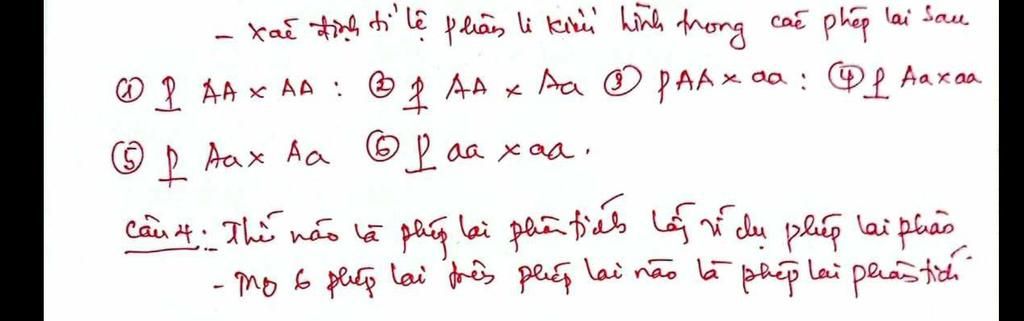 - xác định tỉ lệ phân li kiểu hình trong các phép lai sau
① P AA x AA : ② P AA x Aa ③ P AA x aa : ④ P Aa x aa
⑤ P Aa x Aa ⑥ P aa x aa .
Câu 4: Thế nào là phép lai phân tích lấy ví dụ phép lai phân
- 6 phép lai trên phép lai nào là phép lai phân tích